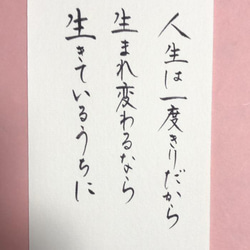 人生は一度きりだから
生まれ変わるなら
生きているうちに